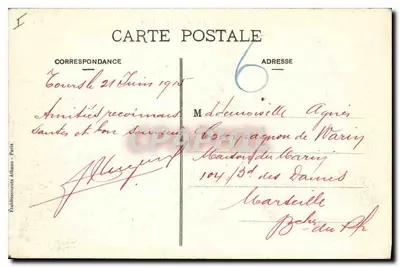 CARTE POSTALE
CORRESPONDANCE
ADRESSE
6
Tours le 21 Juin 1915
Amitiés reconnais
santes et bon souvenir
Mademoiselle Agnès
Compagnon de Marin
Maison du Marin
104 Bd des Dames
Marseille
Bches du Rh
Établissements Albaret - Paris